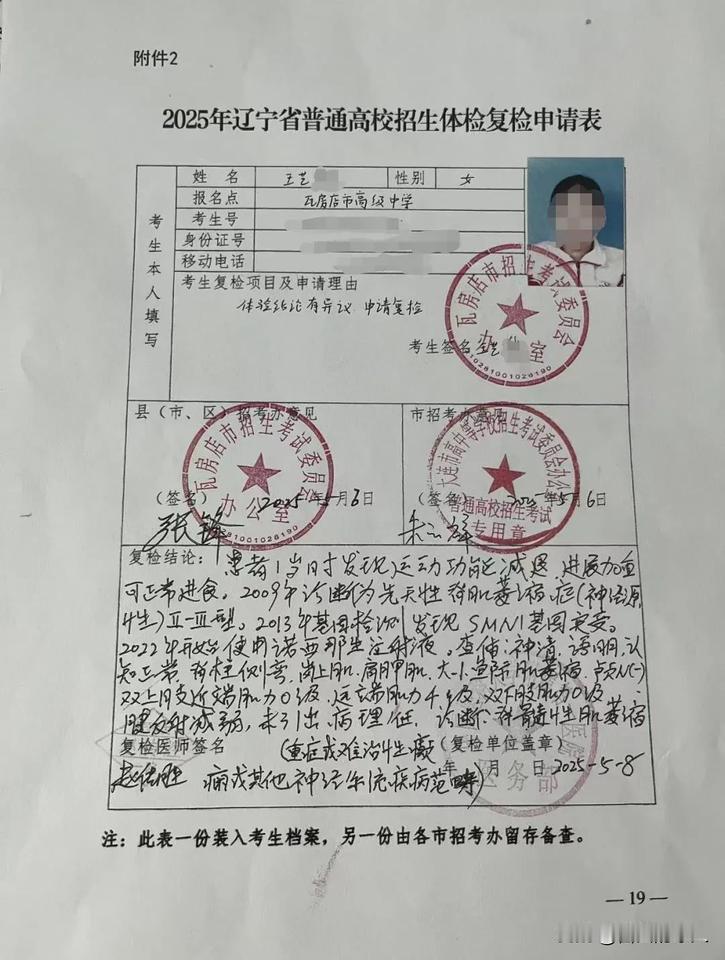 附件2
2025年辽宁省普通高校招生体检复检申请表
考生本人填写
姓名 王艺 性别 女
报名点 瓦房店市高级中学
考生号
身份证号
移动电话
考生复检项目及申请理由
体检结论有异议 申请复检
考生签名 王艺
瓦房店市招生考试委员会
办公室
210281001026190
县(市、区)招考办意见
市招考办意见
瓦房店市招生考试委员会
办公室
大连市高中等学校招生考试委员会办公
普通高校招生考试
专用章
(签名) 2025年5月6日
(签名) 2025年5月6日
张锋
复检结论: 患者1岁时发现运动功能减退,进展加重
可正常进食。2009年诊断为先天性脊肌萎缩症(神经原
性)II-III型。2013年基因检测发现SMN1基因突变。
2022年开始使用诺西那生注射液。查体:神清,语明,认
知正常,脊柱侧弯,岗上肌、肩胛肌、大小鱼际肌萎缩,颅N(-)
双上肢近端肌力0级,远端肌力4级,双下肢肌力0级
腱反射减弱,未引出病理征。诊断:脊髓性肌萎缩
复检医师签名 (重症或难治性癫 (复检单位盖章)
痫或其他神经系统疾病范畴) 年 月 日 2025-5-8
医务部
注:此表一份装入考生档案,另一份由各市招考办留存备查。
— 19 —